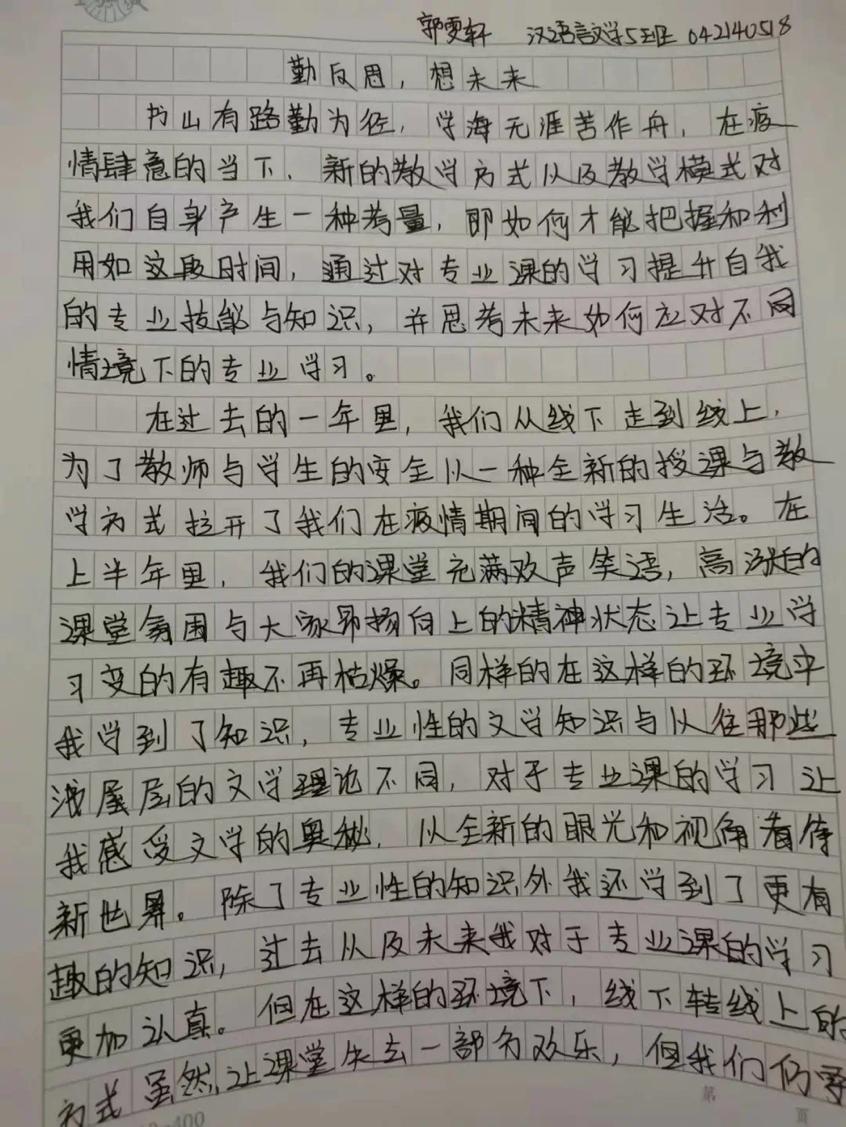 郭雯轩 汉语言文学5班 042140518
勤反思，想未来
书山有路勤为径，学海无涯苦作舟，在疫
情肆意的当下，新的教学方式以及教学模式对
我们自身产生一种考量，即如何才能把握和利
用如这段时间，通过对专业课的学习提升自我
的专业技能与知识，并思考未来如何应对不同
情境下的专业学习。
在过去的一年里，我们从线下走到线上，
为了教师与学生的安全以一种全新的授课与教
学方式拉开了我们在疫情期间的学习生活。在
上半年里，我们的课堂充满欢声笑语，高涨的
课堂氛围与大家昂扬向上的精神状态让专业学
习变的有趣不再枯燥。同样的在这样的环境中
我学到了知识，专业性的文学知识与以往那些
浅层的文学理论不同，对于专业课的学习让
我感受文学的奥秘，从全新的眼光和视角看待
新世界。除了专业性的知识外我还学到了更有
趣的知识，过去以及未来我对于专业课的学习
更加认真。但在这样的环境下，线下转线上的
方式虽然让课堂失去一部分欢乐，但我们仍
第 页
400